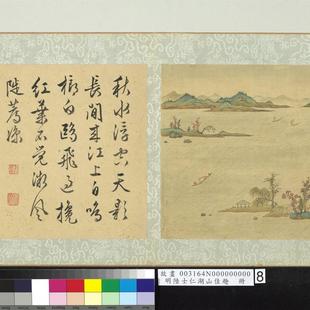 秋水浮空天影
長閒來江上自鳴
榔白鷗飛
紅葉不覺微風
陡薦涼
故畫 003164N000000000 8
明陸士仁湖山佳趣 冊